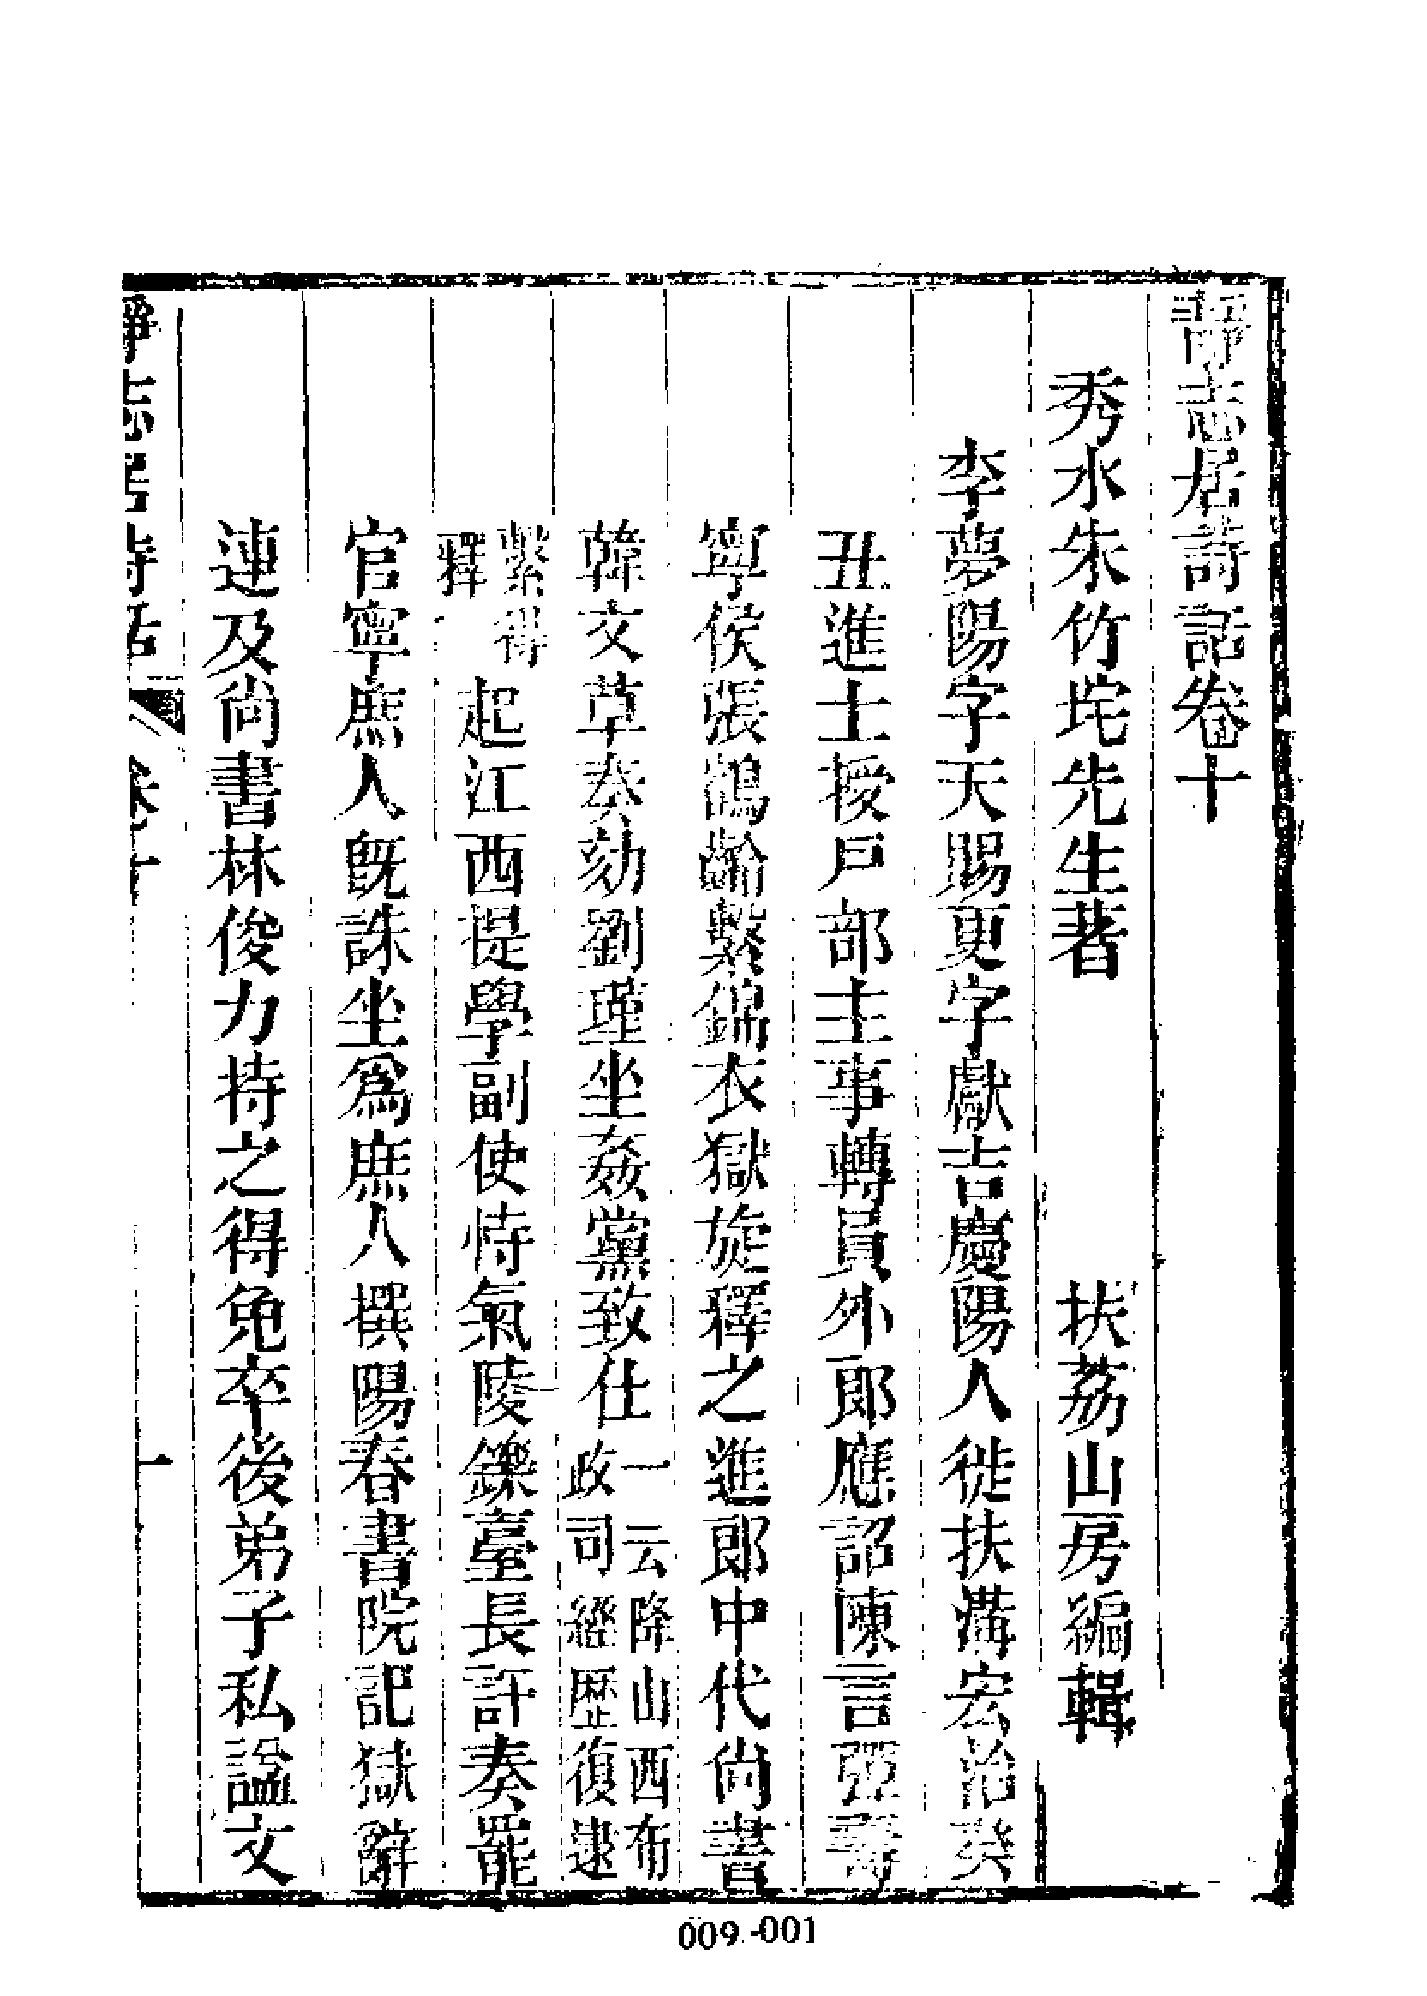 靜志居詩話卷十
秀水朱竹垞先生著　扶荔山房編輯
李夢陽字天賜更字獻吉慶陽人徙扶溝宏治癸
丑進士授戶部主事轉員外郎應詔陳言彈壽
寧侯張鶴齡繫錦衣獄旋釋之進郎中代尚書
韓文草奏劾劉瑾坐姦黨致仕
一云降山西布
政司經歴復逮
繫得
釋
起江西提學副使恃氣陵鑠臺長訐奏罷
官寧庶人旣誅坐爲庶人撰陽春書院記獄辭
連及尚書林俊力持之得免卒後弟子私諡文
靜志居詩話　卷十　一
009-001